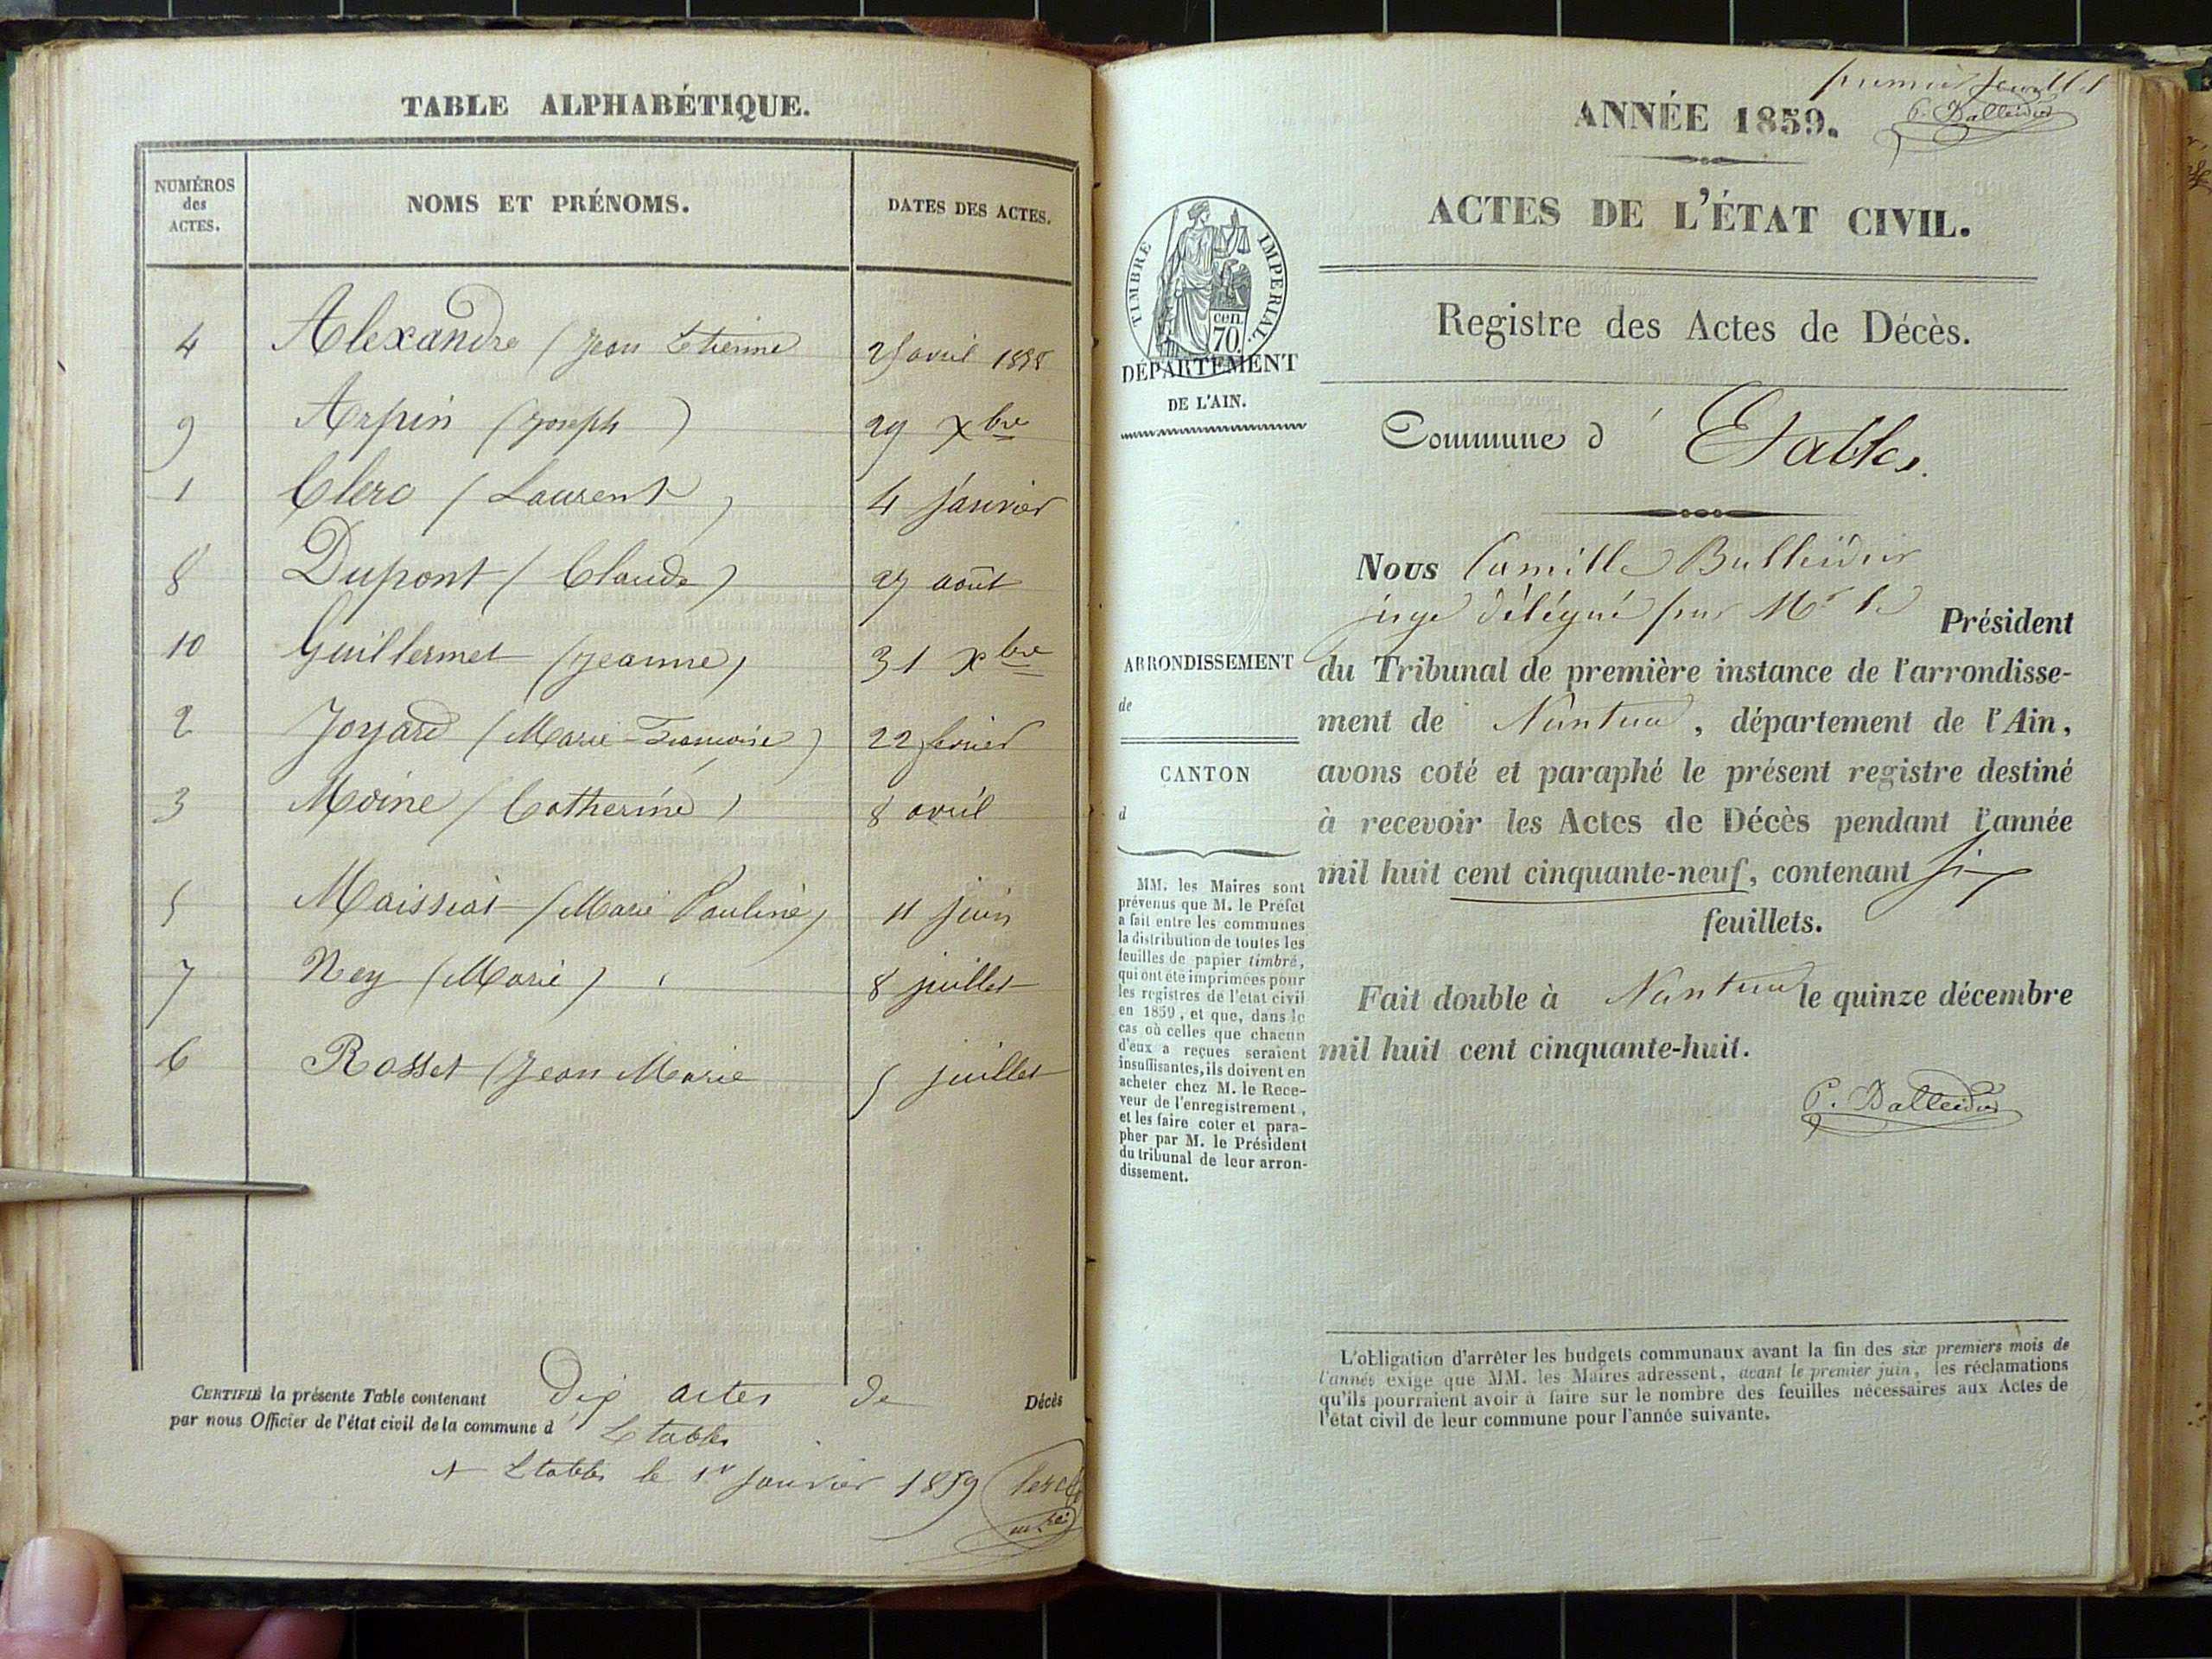 TABLE ALPHABÉTIQUE.
NUMÉROS
des
ACTES.
NOMS ET PRÉNOMS.
DATES DES ACTES.
4 Alexandre (Jean Etienne 25 avril 1858
9 Arpin (Joseph) 29 Xbre
1 Clerc (Laurent) 4 janvier
8 Dupont (Claude) 27 août
10 Guillermet (Jeanne) 31 Xbre
2 Joyard (Marie-Françoise) 22 février
3 Moine (Catherine) 8 avril
5 Maissiat (Marie Pauline) 11 juin
7 Ney (Marie) 8 juillet
6 Rosset (Jean Marie 5 juillet
CERTIFIÉ la présente Table contenant Dix actes de Décès
par nous Officier de l'état civil de la commune d Etables
A Etables le 1r janvier 1859
premier feuillet
ANNÉE 1859.
ACTES DE L'ÉTAT CIVIL.
TIMBRE IMPERIAL.
cen.
70
DÉPARTEMENT
DE L'AIN.
Registre des Actes de Décès.
Commune d'Etables.
Nous Camille
juge délégué par Mr le Président
du Tribunal de première instance de l'arrondisse-
ment de Nantua, département de l'Ain,
avons coté et paraphé le présent registre destiné
à recevoir les Actes de Décès pendant l'année
mil huit cent cinquante-neuf, contenant six
feuillets.
Fait double à Nantua le quinze décembre
mil huit cent cinquante-huit.
ARRONDISSEMENT
de
CANTON
d
MM. les Maires sont
prévenus que M. le Préfet
a fait entre les communes
la distribution de toutes les
feuilles de papier timbré,
qui ont été imprimées pour
les registres de l'état civil
en 1859, et que, dans le
cas où celles que chacun
d'eux a reçues seraient
insuffisantes, ils doivent en
acheter chez M. le Rece-
veur de l'enregistrement,
et les faire coter et para-
pher par M. le Président
du tribunal de leur arron-
dissement.
L'obligation d'arrêter les budgets communaux avant la fin des six premiers mois de
l'année exige que MM. les Maires adressent, avant le premier juin, les réclamations
qu'ils pourraient avoir à faire sur le nombre des feuilles nécessaires aux Actes de
l'état civil de leur commune pour l'année suivante.